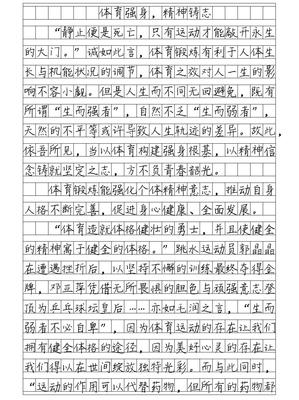 体育强身，精神铸志
“静止便是死亡，只有运动才能敲开永生
的大门。”诚如此言，体育锻炼有利于人体生
长与机能状况的调节，体育之效对人一生的影
响不容小觑。但是人生而不同无回避免，既有
所谓“生而强者”，自然不乏“生而弱者”，
天然的不平等或许导致人生轨迹的差异。故此，
依吾所见，当以体育构建强身根基，以精神信
念铸就坚定之志，方不负青春韶光。
体育锻炼能强化个体精神意志，推动自身
人格不断完善，促进身心健康、全面发展。
“体育造就体格健壮的勇士，并且使健全
的精神寓于健全的体格。”跳水运动员郭晶晶
在遭遇挫折后，以坚持不懈的训练最终夺得金
牌，邓亚萍凭借无所畏惧的胆色与顽强意志登
顶为乒乓球坛皇后……亦如毛润之言，“生而
弱者不必自卑”，因为体育运动的存在让我们
拥有健全体格的途径，因为美好心灵的存在让
我们得以在世间绽放独特光彩。而与此同时，
“运动的作用可以代替药物，但所有的药物都